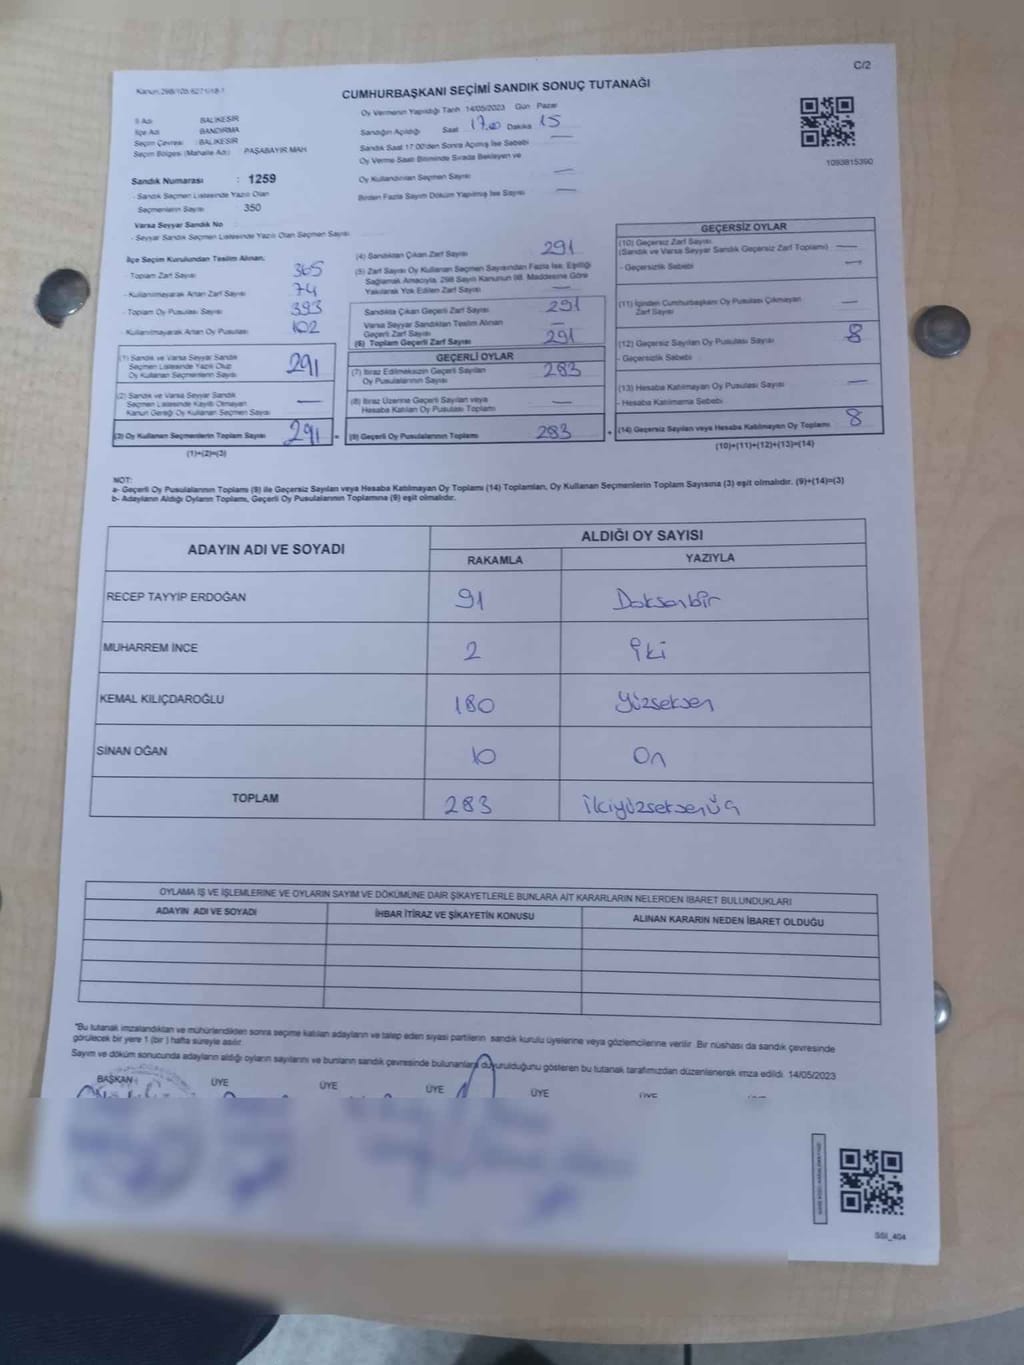 C/2
Kanun:298/105 6271/18-1
CUMHURBAŞKANI SEÇİMİ SANDIK SONUÇ TUTANAĞI
İl Adı BALIKESİR
İlçe Adı BANDIRMA
Seçim Çevresi : BALIKESİR
Seçim Bölgesi (Mahalle Adı) PAŞABAYIR MAH
Oy Vermenin Yapıldığı Tarih 14/05/2023 Gün Pazar
Sandığın Açıldığı Saat 17.00 Dakika 15
Sandık Saat 17:00'den Sonra Açılmış İse Sebebi —
Oy Verme Saati Bitiminde Sırada Bekleyen ve
Oy Kullandırılan Seçmen Sayısı —
Birden Fazla Sayım Döküm Yapılmış İse Sayısı —
1093815390
Sandık Numarası : 1259
- Sandık Seçmen Listesinde Yazılı Olan
Seçmenlerin Sayısı 350
Varsa Seyyar Sandık No
- Seyyar Sandık Seçmen Listesinde Yazılı Olan Seçmen Sayısı
İlçe Seçim Kurulundan Teslim Alınan;
- Toplam Zarf Sayısı 365
- Kullanılmayarak Artan Zarf Sayısı 74
- Toplam Oy Pusulası Sayısı 393
- Kullanılmayarak Artan Oy Pusulası 102
(1) Sandık ve Varsa Seyyar Sandık
Seçmen Listesinde Yazılı Olup
Oy Kullanan Seçmenlerin Sayısı 291
(2) Sandık ve Varsa Seyyar Sandık
Seçmen Listesinde Kayıtlı Olmayan
Kanun Gereği Oy Kullanan Seçmen Sayısı —
(3) Oy Kullanan Seçmenlerin Toplam Sayısı 291 =
(1)+(2)=(3)
(4) Sandıktan Çıkan Zarf Sayısı 291
(5) Zarf Sayısı Oy Kullanan Seçmen Sayısından Fazla İse, Eşitliği
Sağlamak Amacıyla, 298 Sayılı Kanunun 98. Maddesine Göre
Yakılarak Yok Edilen Zarf Sayısı —
Sandıkta Çıkan Geçerli Zarf Sayısı 291
Varsa Seyyar Sandıktan Teslim Alınan
Geçerli Zarf Sayısı —
(6) Toplam Geçerli Zarf Sayısı 291
GEÇERLİ OYLAR
(7) İtiraz Edilmeksizin Geçerli Sayılan
Oy Pusulalarının Sayısı 283
(8) İtiraz Üzerine Geçerli Sayılan veya
Hesaba Katılan Oy Pusulası Toplamı —
(9) Geçerli Oy Pusulalarının Toplamı 283 +
GEÇERSİZ OYLAR
(10) Geçersiz Zarf Sayısı
(Sandık ve Varsa Seyyar Sandık Geçersiz Zarf Toplamı) —
- Geçersizlik Sebebi —
(11) İçinden Cumhurbaşkanı Oy Pusulası Çıkmayan
Zarf Sayısı —
(12) Geçersiz Sayılan Oy Pusulası Sayısı 8
- Geçersizlik Sebebi
(13) Hesaba Katılmayan Oy Pusulası Sayısı —
- Hesaba Katılmama Sebebi
(14) Geçersiz Sayılan veya Hesaba Katılmayan Oy Toplamı 8
(10)+(11)+(12)+(13)=(14)
NOT:
a- Geçerli Oy Pusulalarının Toplamı (9) ile Geçersiz Sayılan veya Hesaba Katılmayan Oy Toplamı (14) Toplamları, Oy Kullanan Seçmenlerin Toplam Sayısına (3) eşit olmalıdır. (9)+(14)=(3)
b- Adayların Aldığı Oyların Toplamı, Geçerli Oy Pusulalarının Toplamına (9) eşit olmalıdır.
ADAYIN ADI VE SOYADI ALDIĞI OY SAYISI
RAKAMLA YAZIYLA
RECEP TAYYİP ERDOĞAN 91 Doksanbir
MUHARREM İNCE 2 iki
KEMAL KILIÇDAROĞLU 180 Yüzseksen
SİNAN OĞAN 10 On
TOPLAM 283 ikiyüzseksenüç
OYLAMA İŞ VE İŞLEMLERİNE VE OYLARIN SAYIM VE DÖKÜMÜNE DAİR ŞİKAYETLERLE BUNLARA AİT KARARLARIN NELERDEN İBARET BULUNDUKLARI
ADAYIN ADI VE SOYADI İHBAR İTİRAZ VE ŞİKAYETİN KONUSU ALINAN KARARIN NEDEN İBARET OLDUĞU
*Bu tutanak imzalandıktan ve mühürlendikten sonra seçime katılan adayların ve talep eden siyasi partilerin sandık kurulu üyelerine veya gözlemcilerine verilir. Bir nüshası da sandık çevresinde
görülecek bir yere 1 (bir ) hafta süreyle asılır.
Sayım ve döküm sonucunda adayların aldığı oyların sayılarını ve bunların sandık çevresinde bulunanlara duyurulduğunu gösteren bu tutanak tarafımızdan düzenlenerek imza edildi. 14/05/2023
BAŞKAN ÜYE ÜYE ÜYE ÜYE ÜYE
SSI_404